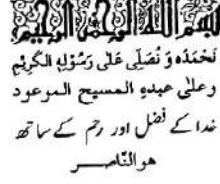 بسم الله الرحمن الرحيم
نَحْمَدُهٗ وَ نُصَلِّی عَلٰی رَسُوْلِهِ الْکَرِیْمِ
وعلیٰ عبدہ المسیح الموعود
خدا کے فضل اور رحم کے ساتھ
ھو النّاصـــر